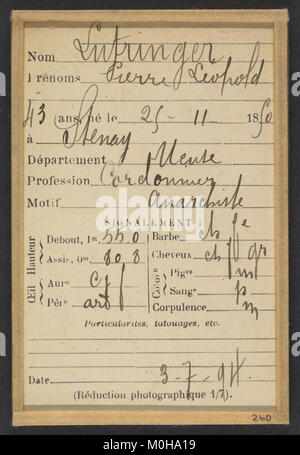 Nom Lutringer
Prénoms Pierre Léopold
43 (ans, né le 25-11 1850
à Stenay
Département Meuse
Profession Cordonnier
Motif Anarchiste
SIGNALEMENT :
Hauteur
Debout, 1m. 55.0
Assis, 0m. 80.8
Œil
Aurle
Périe
Barbe ch
Cheveux ch
Pigre m
Sange p
Corpulence m
Particularités, tatouages, etc.
Date 3-7-94.
(Réduction photographique 1/7).
260
alamy
Image ID: M0HA19
www.alamy.com